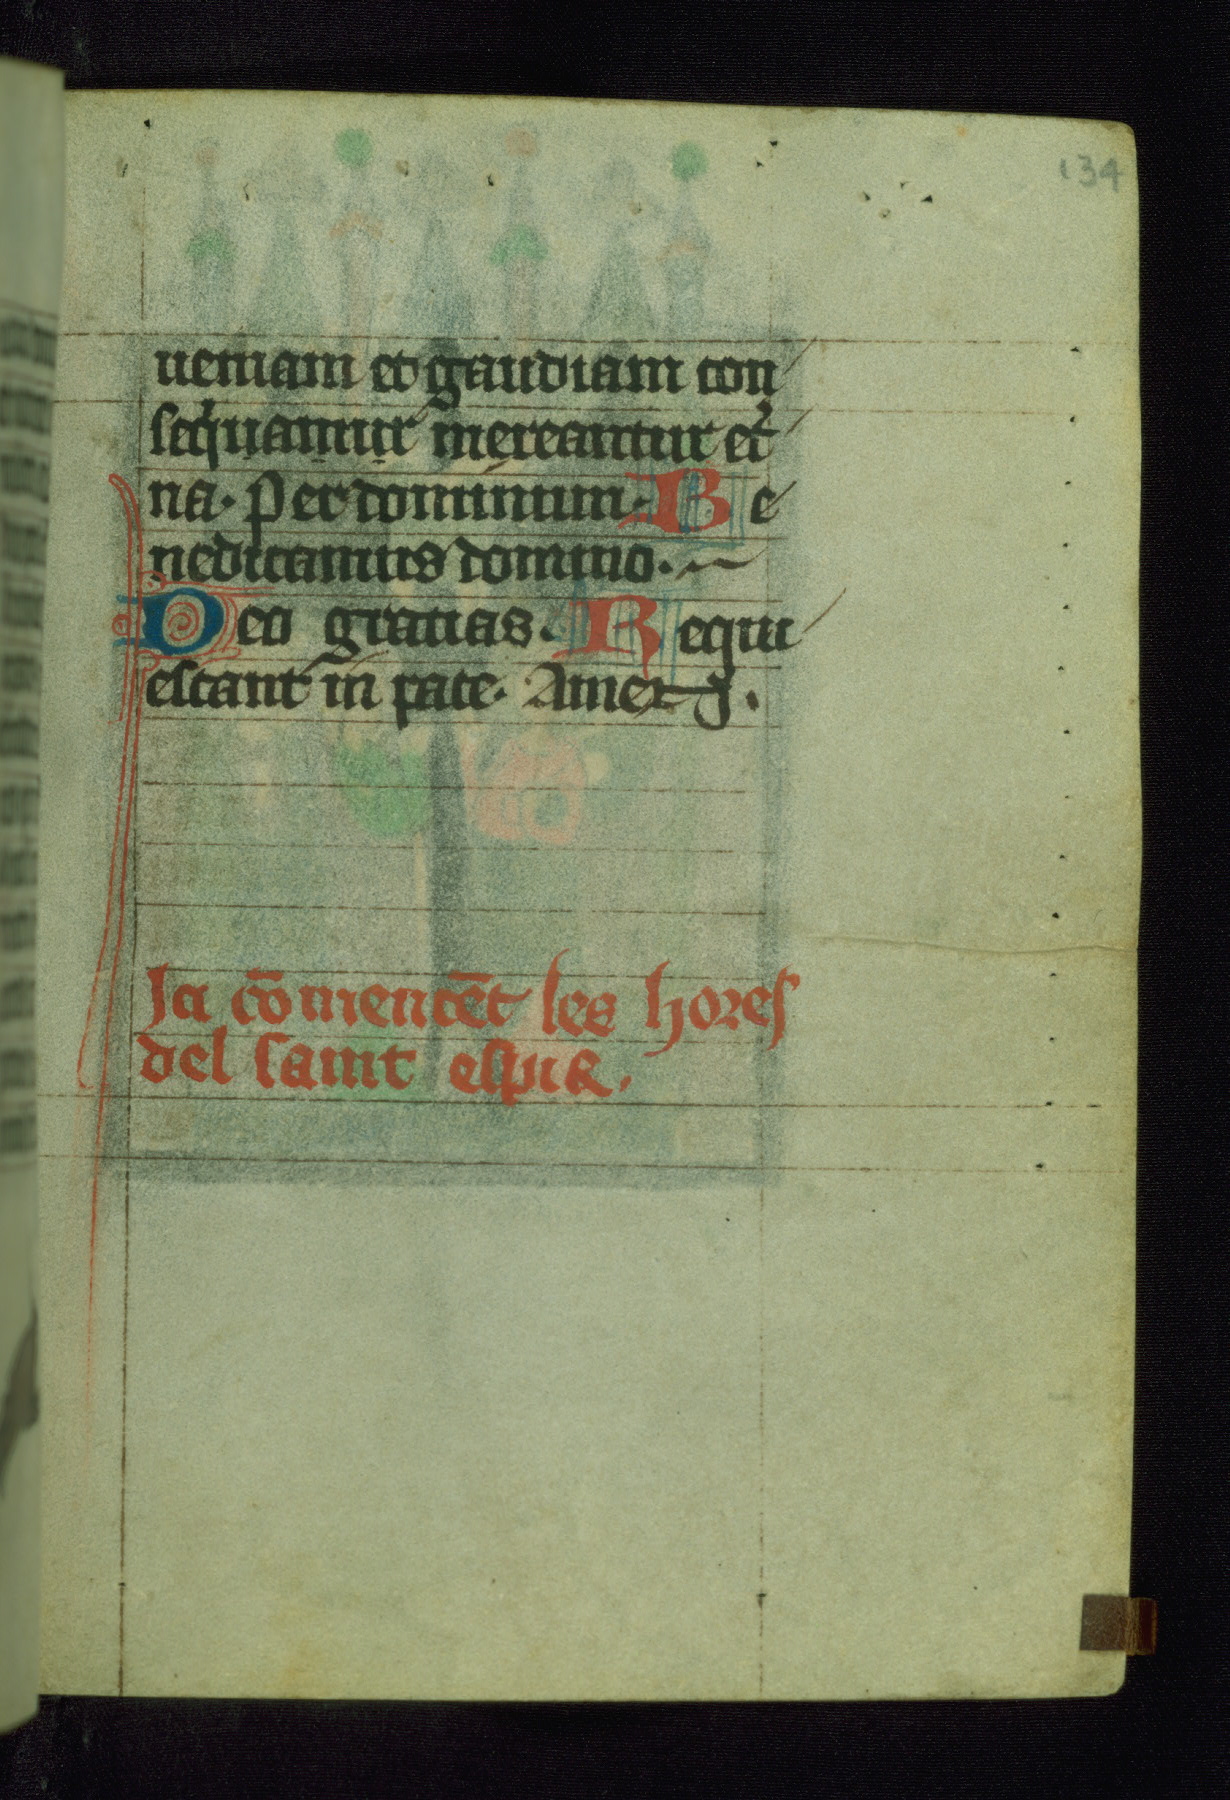 134
ueniam et gaudiam con
seq̓uamur mereantur et̓
na. Per dominum. Be
nedicamus domino.
Deo gratias. Requi
escant in pace. Amen.
Ici cōmencēt les hores
del saint espir.